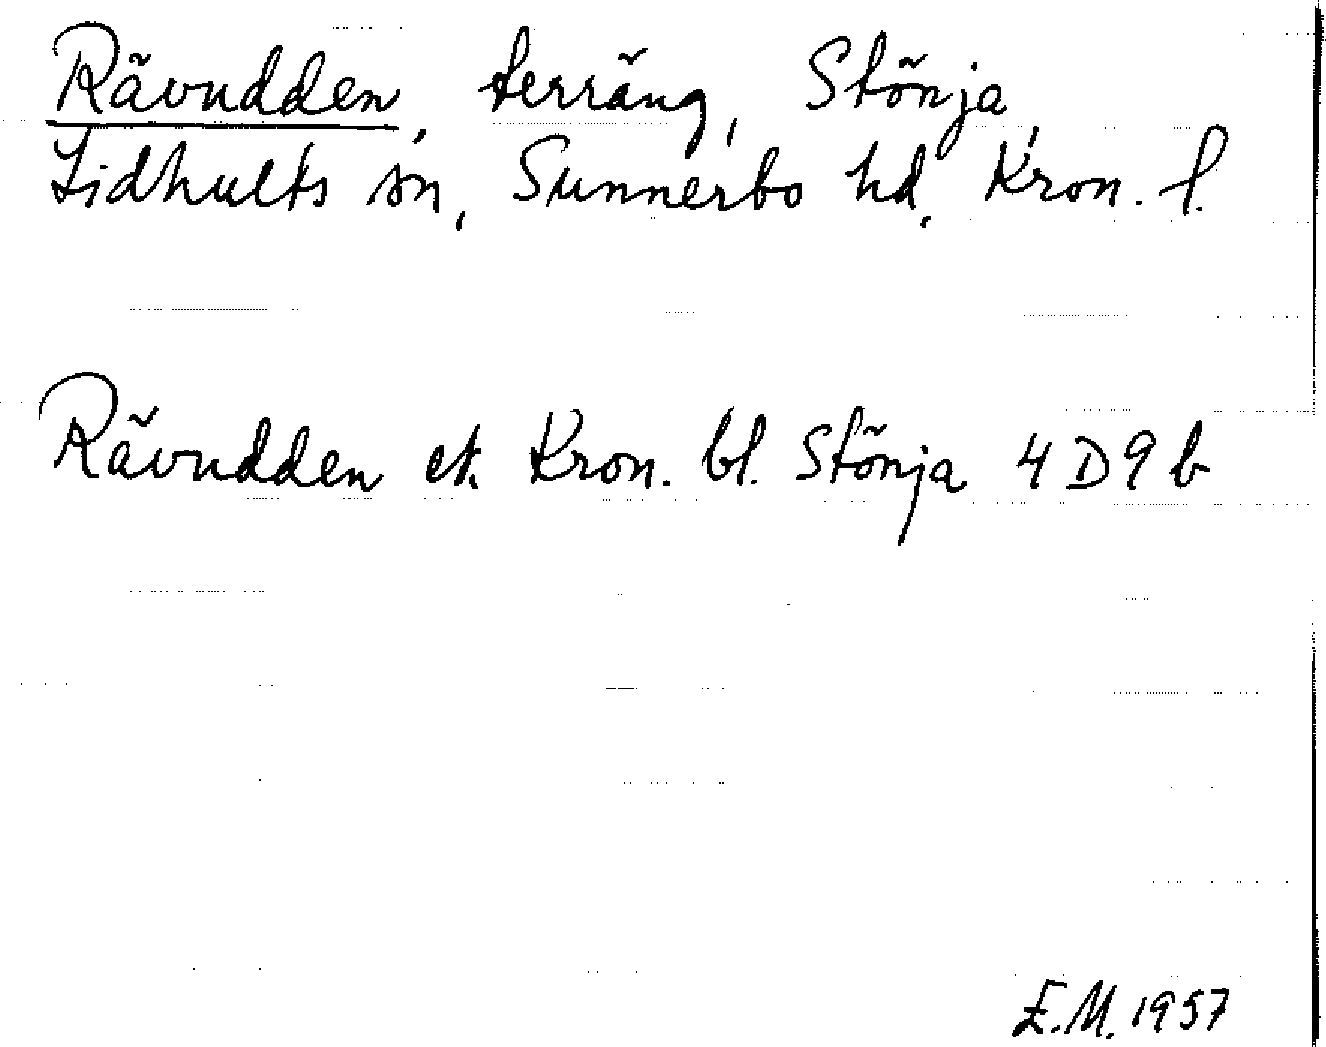 Rävudden, terräng, Stönja,
Lidhults sn, Sunnerbo hd, Kron. l.
Rävudden ek. Kron. bl. Stönja 4 D 9 b
E.M. 1957